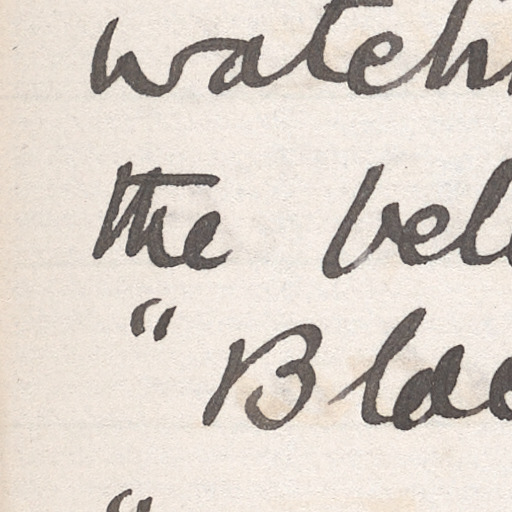 watch
the bel
" Blac
"